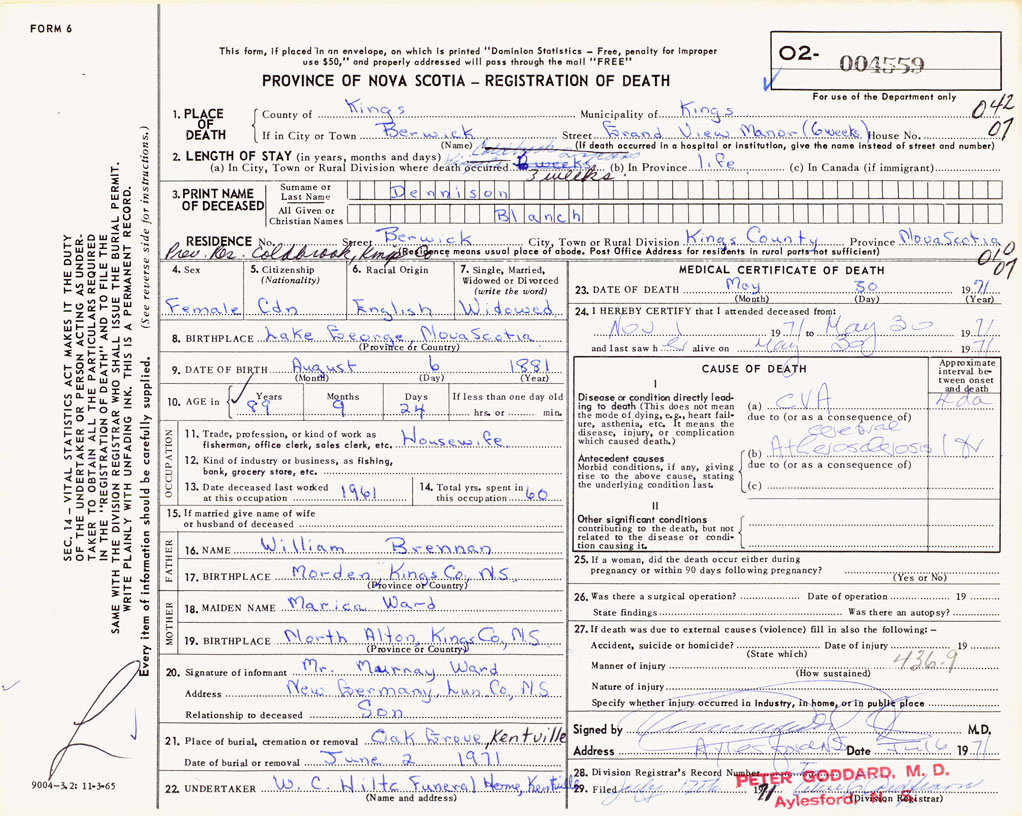 FORM 6
This form, if placed in an envelope, on which is printed "Dominion Statistics – Free, penalty for improper
use $50," and properly addressed will pass through the mail "FREE"
PROVINCE OF NOVA SCOTIA – REGISTRATION OF DEATH
02- 004559
For use of the Department only
SEC. 14 – VITAL STATISTICS ACT MAKES IT THE DUTY
OF THE UNDERTAKER OR PERSON ACTING AS UNDER-
TAKER TO OBTAIN ALL THE PARTICULARS REQUIRED
IN THE "REGISTRATION OF DEATH" AND TO FILE THE
SAME WITH THE DIVISION REGISTRAR WHO SHALL ISSUE THE BURIAL PERMIT.
WRITE PLAINLY WITH UNFADING INK. THIS IS A PERMANENT RECORD.
Every item of information should be carefully supplied. (See reverse side for instructions.)
1. PLACE OF DEATH
County of Kings Municipality of Kings 042
If in City or Town Berwick Street Grand View Manor (6 weeks) House No. 07
(Name) (If death occurred in a hospital or institution, give the name instead of street and number)
2. LENGTH OF STAY (in years, months and days)
(a) In City, Town or Rural Division where death occurred 6 weeks (b) In Province life (c) In Canada (if immigrant)
3 weeks.
3. PRINT NAME OF DECEASED
Surname or Last Name Dennison
All Given or Christian Names Blanch
RESIDENCE No. Street Berwick City, Town or Rural Division Kings County Province Nova Scotia
Prev. Res. Coldbrook, Kings Co (Residence means usual place of abode. Post Office Address for residents in rural parts not sufficient) 07
4. Sex Female
5. Citizenship (Nationality) Cdn
6. Racial Origin English
7. Single, Married, Widowed or Divorced (write the word) Widowed
8. BIRTHPLACE Lake George, Nova Scotia
(Province or Country)
9. DATE OF BIRTH August 6 1881
(Month) (Day) (Year)
10. AGE in Years Months Days If less than one day old
89 9 24 hrs. or min.
OCCUPATION
11. Trade, profession, or kind of work as
fisherman, office clerk, sales clerk, etc. Housewife
12. Kind of industry or business, as fishing,
bank, grocery store, etc.
13. Date deceased last worked
at this occupation 1961
14. Total yrs. spent in
this occupation 60
15. If married give name of wife
or husband of deceased
FATHER
16. NAME William Brennan
17. BIRTHPLACE Morden, Kings Co, N.S.
(Province or Country)
MOTHER
18. MAIDEN NAME Marica Ward
19. BIRTHPLACE North Alton, Kings Co, N.S
(Province or Country)
20. Signature of informant Mr. Murray Ward
Address New Germany, Lun. Co, N.S
Relationship to deceased Son
21. Place of burial, cremation or removal Oak Grove, Kentville
Date of burial or removal June 2 1971
22. UNDERTAKER W. C. Hiltz Funeral Home, Kentville
(Name and address)
9004–3.2: 11-3-65
MEDICAL CERTIFICATE OF DEATH
23. DATE OF DEATH May 30 1971
(Month) (Day) (Year)
24. I HEREBY CERTIFY that I attended deceased from:
Nov 1 1971 to May 30 1971
and last saw her alive on May 30 1971
CAUSE OF DEATH
Approximate interval between onset and death
I
Disease or condition directly lead-
ing to death (This does not mean
the mode of dying, e.g., heart fail-
ure, asthenia, etc. It means the
disease, injury, or complication
which caused death.)
(a) CVA 4 da
due to (or as a consequence of)
cerebral
(b) Atherosclerosis
Antecedent causes
Morbid conditions, if any, giving
rise to the above cause, stating
the underlying condition last.
due to (or as a consequence of)
(c)
II
Other significant conditions
contributing to the death, but not
related to the disease or condi-
tion causing it.
25. If a woman, did the death occur either during
pregnancy or within 90 days following pregnancy?
(Yes or No)
26. Was there a surgical operation? Date of operation 19
State findings Was there an autopsy?
27. If death was due to external causes (violence) fill in also the following: –
Accident, suicide or homicide? Date of injury 19
(State which) 436.9
Manner of injury
(How sustained)
Nature of injury
Specify whether injury occurred in industry, in home, or in public place
Signed by M.D.
Address Aylesford Date 1971
28. Division Registrar's Record Number
PETER GODDARD, M. D.
Aylesford, N. S.
29. Filed July 12th 1971
(Division Registrar)